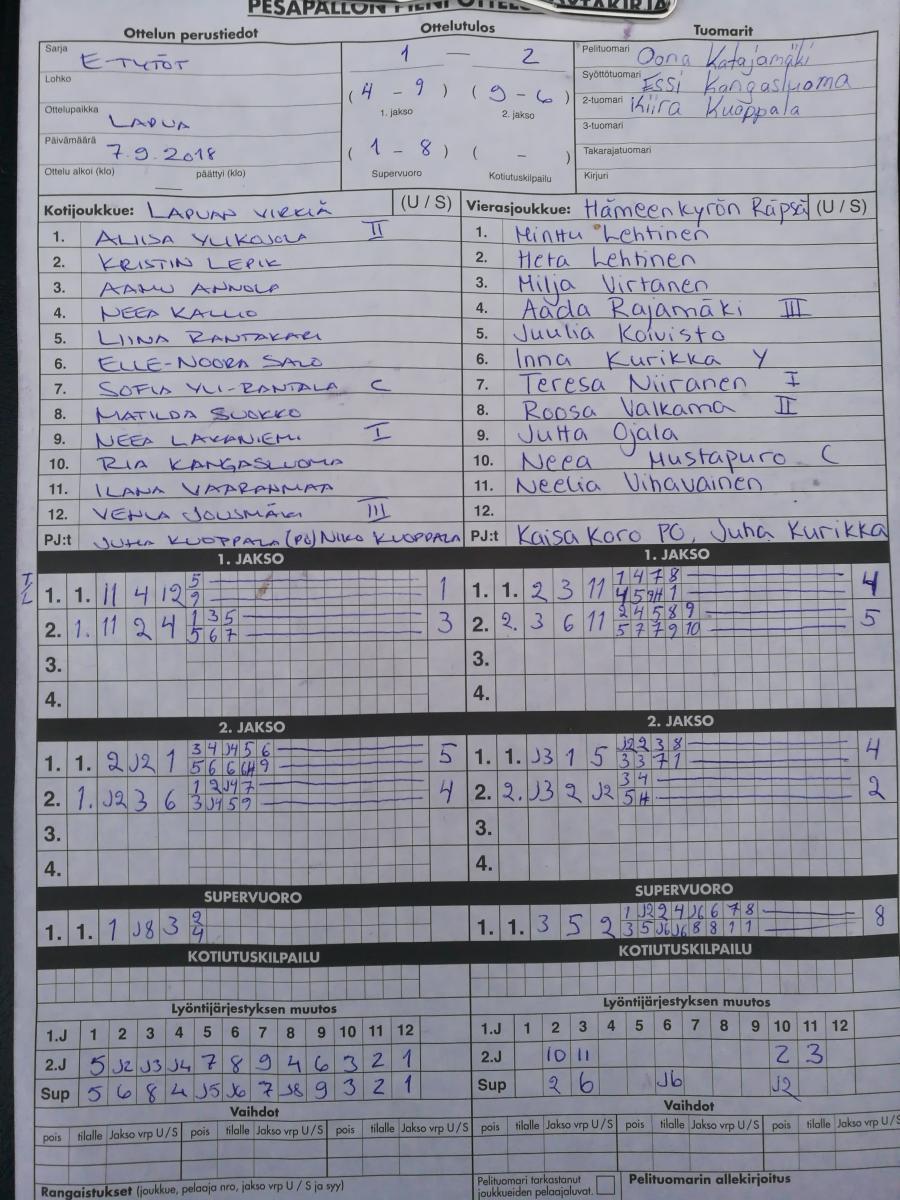 PESÄPALLON
Ottelun perustiedot Ottelutulos Tuomarit
Sarja E-TYTÖT
1 — 2
Pelituomari Oona Katajamäki
Lohko
Syöttötuomari Essi Kangasluoma
(4 - 9) (9 - 6)
1. jakso 2. jakso
2-tuomari Kiira Kuoppala
Ottelupaikka LAPUA
3-tuomari
Päivämäärä 7.9.2018
(1 - 8) ( - )
Takarajatuomari
Ottelu alkoi (klo) päättyi (klo)
Supervuoro Kotiutuskilpailu
Kirjuri
Kotijoukkue: LAPUAN VIRKIÄ (U / S) Vierasjoukkue: Hämeenkyrön Räpsä (U / S)
1. ALIISA YLIKOJOLA II 1. Minttu Lehtinen
2. KRISTIN LEPIK 2. Heta Lehtinen
3. AAMU ANNOLA 3. Milja Virtanen
4. NEEA KALLIO 4. Aada Rajamäki III
5. LIINA RANTAKARI 5. Juulia Koivisto
6. ELLE-NOORA SALO 6. Inna Kurikka Y
7. SOFIA YLI-RANTALA C 7. Teresa Niiranen I
8. MATILDA SUOKKO 8. Roosa Valkama II
9. NEEA LAKANIEMI I 9. Jutta Ojala
10. RIA KANGASLUOMA 10. Neea Mustapuro C
11. ILANA VAARANMAA 11. Neelia Vihavainen
12. VENLA JOUSMÄKI III 12.
PJ:t JUHA KUOPPALA (PO) NIKO KUOPPALA PJ:t Kaisa Koro PO, Juha Kurikka
1. JAKSO 1. JAKSO
1. 1. 11 4 12 5 1 1. 1. 2 3 11 1 4 7 8 4
9 4 5 9H 1
2. 1. 11 2 4 1 3 5 3 2. 2. 3 6 11 2 4 5 8 9 5
5 6 7 5 7 7 9 10
3. 3.
4. 4.
2. JAKSO 2. JAKSO
1. 1. 2 J2 1 3 4 J4 5 6 5 1. 1. J3 1 5 J2 2 3 8 4
5 6 6 6H 9 3 3 7 1
2. 1. J2 3 6 1 2 J4 7 4 2. 2. J3 2 J2 3 4 2
3 J4 5 9 5 H
3. 3.
4. 4.
SUPERVUORO SUPERVUORO
1. 1. 1 J8 3 2 1. 1. 3 5 2 1 J2 2 4 J6 6 7 8 8
4 3 5 J6 J6 8 8 1 1
KOTIUTUSKILPAILU KOTIUTUSKILPAILU
Lyöntijärjestyksen muutos Lyöntijärjestyksen muutos
1.J 1 2 3 4 5 6 7 8 9 10 11 12 1.J 1 2 3 4 5 6 7 8 9 10 11 12
2.J 5 J2 J3 J4 7 8 9 4 6 3 2 1 2.J 10 11 2 3
Sup 5 6 8 4 J5 J6 7 J8 9 3 2 1 Sup 2 6 J6 J2
Vaihdot Vaihdot
pois tilalle Jakso vrp U / S pois tilalle Jakso vrp U / S pois tilalle Jakso vrp U / S pois tilalle Jakso vrp U / S pois tilalle Jakso vrp U / S pois tilalle Jakso vrp U / S
Rangaistukset (joukkue, pelaaja nro, jakso vrp U / S ja syy)
Pelituomari tarkastanut
joukkueiden pelaajaluvat.
Pelituomarin allekirjoitus